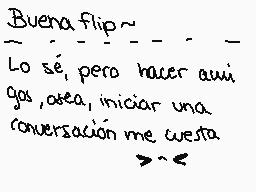 Buena flip~
Lo sé, pero hacer ami
gos, osea, iniciar una
conversación me cuesta
>~<